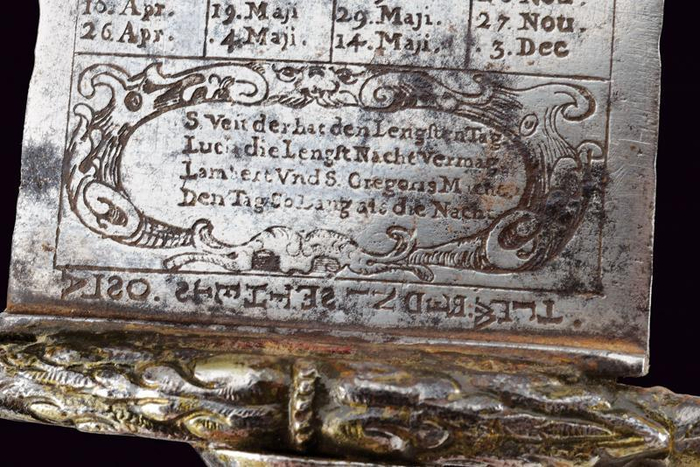 18. Apr. 19. Maji 29. Maji. Nou.
26. Apr. 4. Maji. 14. Maji. 27. Nou.
3. Dec
S. Veit der hat den Lengsten Tag
Lucia die Lengst Nacht Vermag
Lambert Vnd S. Gregoris Macht
Den Tag So Lang als die Nacht